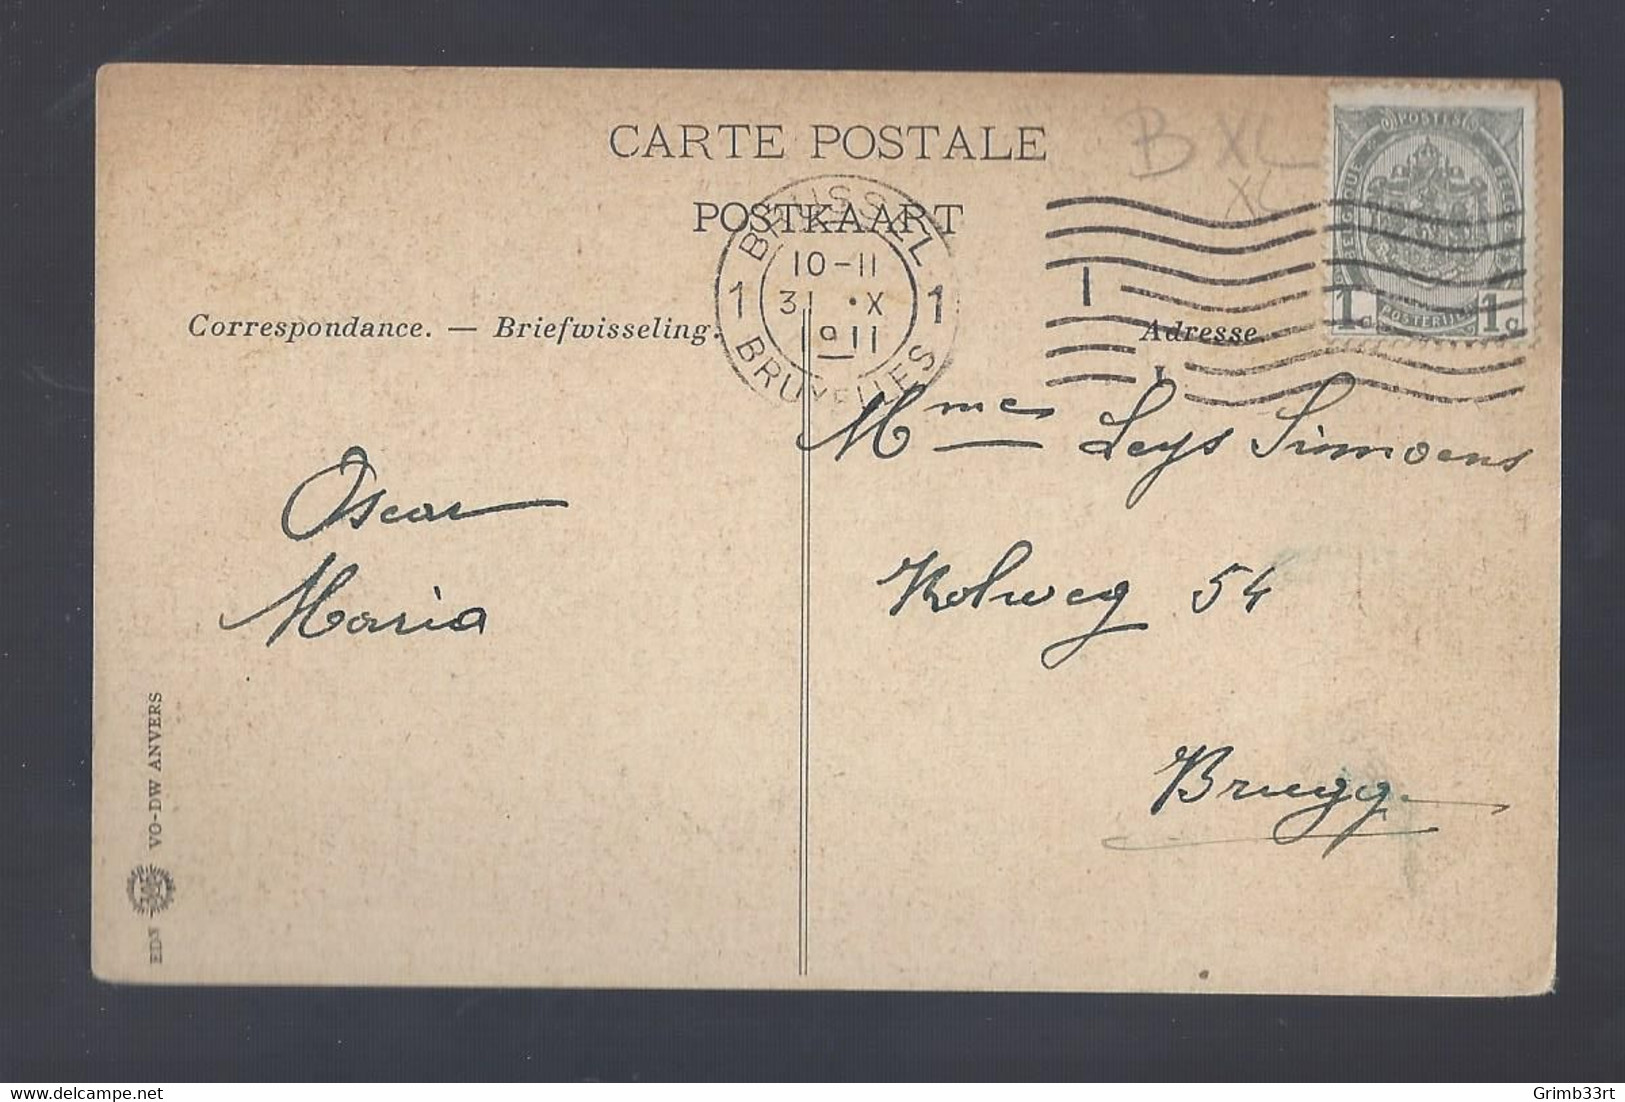 CARTE POSTALE
POSTKAART
BRUSSEL
10-11
1 31 · X 1
1911
BRUXELLES
BXL
XL
POSTES
BELGIQUE BELGIE
1c POSTERIJEN 1c
Correspondance. — Briefwisseling.
Adresse
Oscar
Maria
Mme Leys Simoens
Kolweg 54
Brugg
EDN VO-DW ANVERS
delcampe.net
Grimb33rt